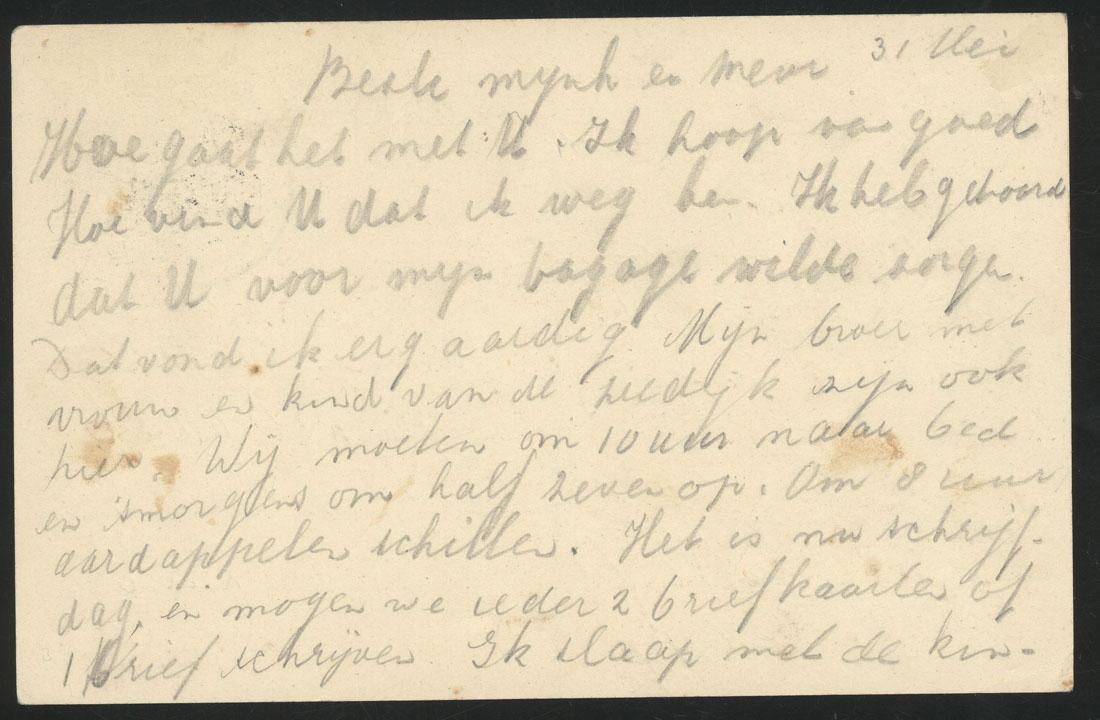 31 Mei
Beste mynh en mevr
Hoe gaat het met U. Ik hoop van goed
Hoe vind U dat ik weg ben. Ik heb gehoord
dat U voor myn bagage wilde sorgen.
Dat vond ik erg aardig Mijn broer met
vrouw en kind van de zeedijk zijn ook
hier. Wij moeten om 10 uur naar bed
en 'smorgens om half zeven op. Om 8 uur
aardappelen schillen. Het is nu schrijf-
dag, en mogen we ieder 2 briefkaarten of
1 brief schrijven Ik slaap met de kin-